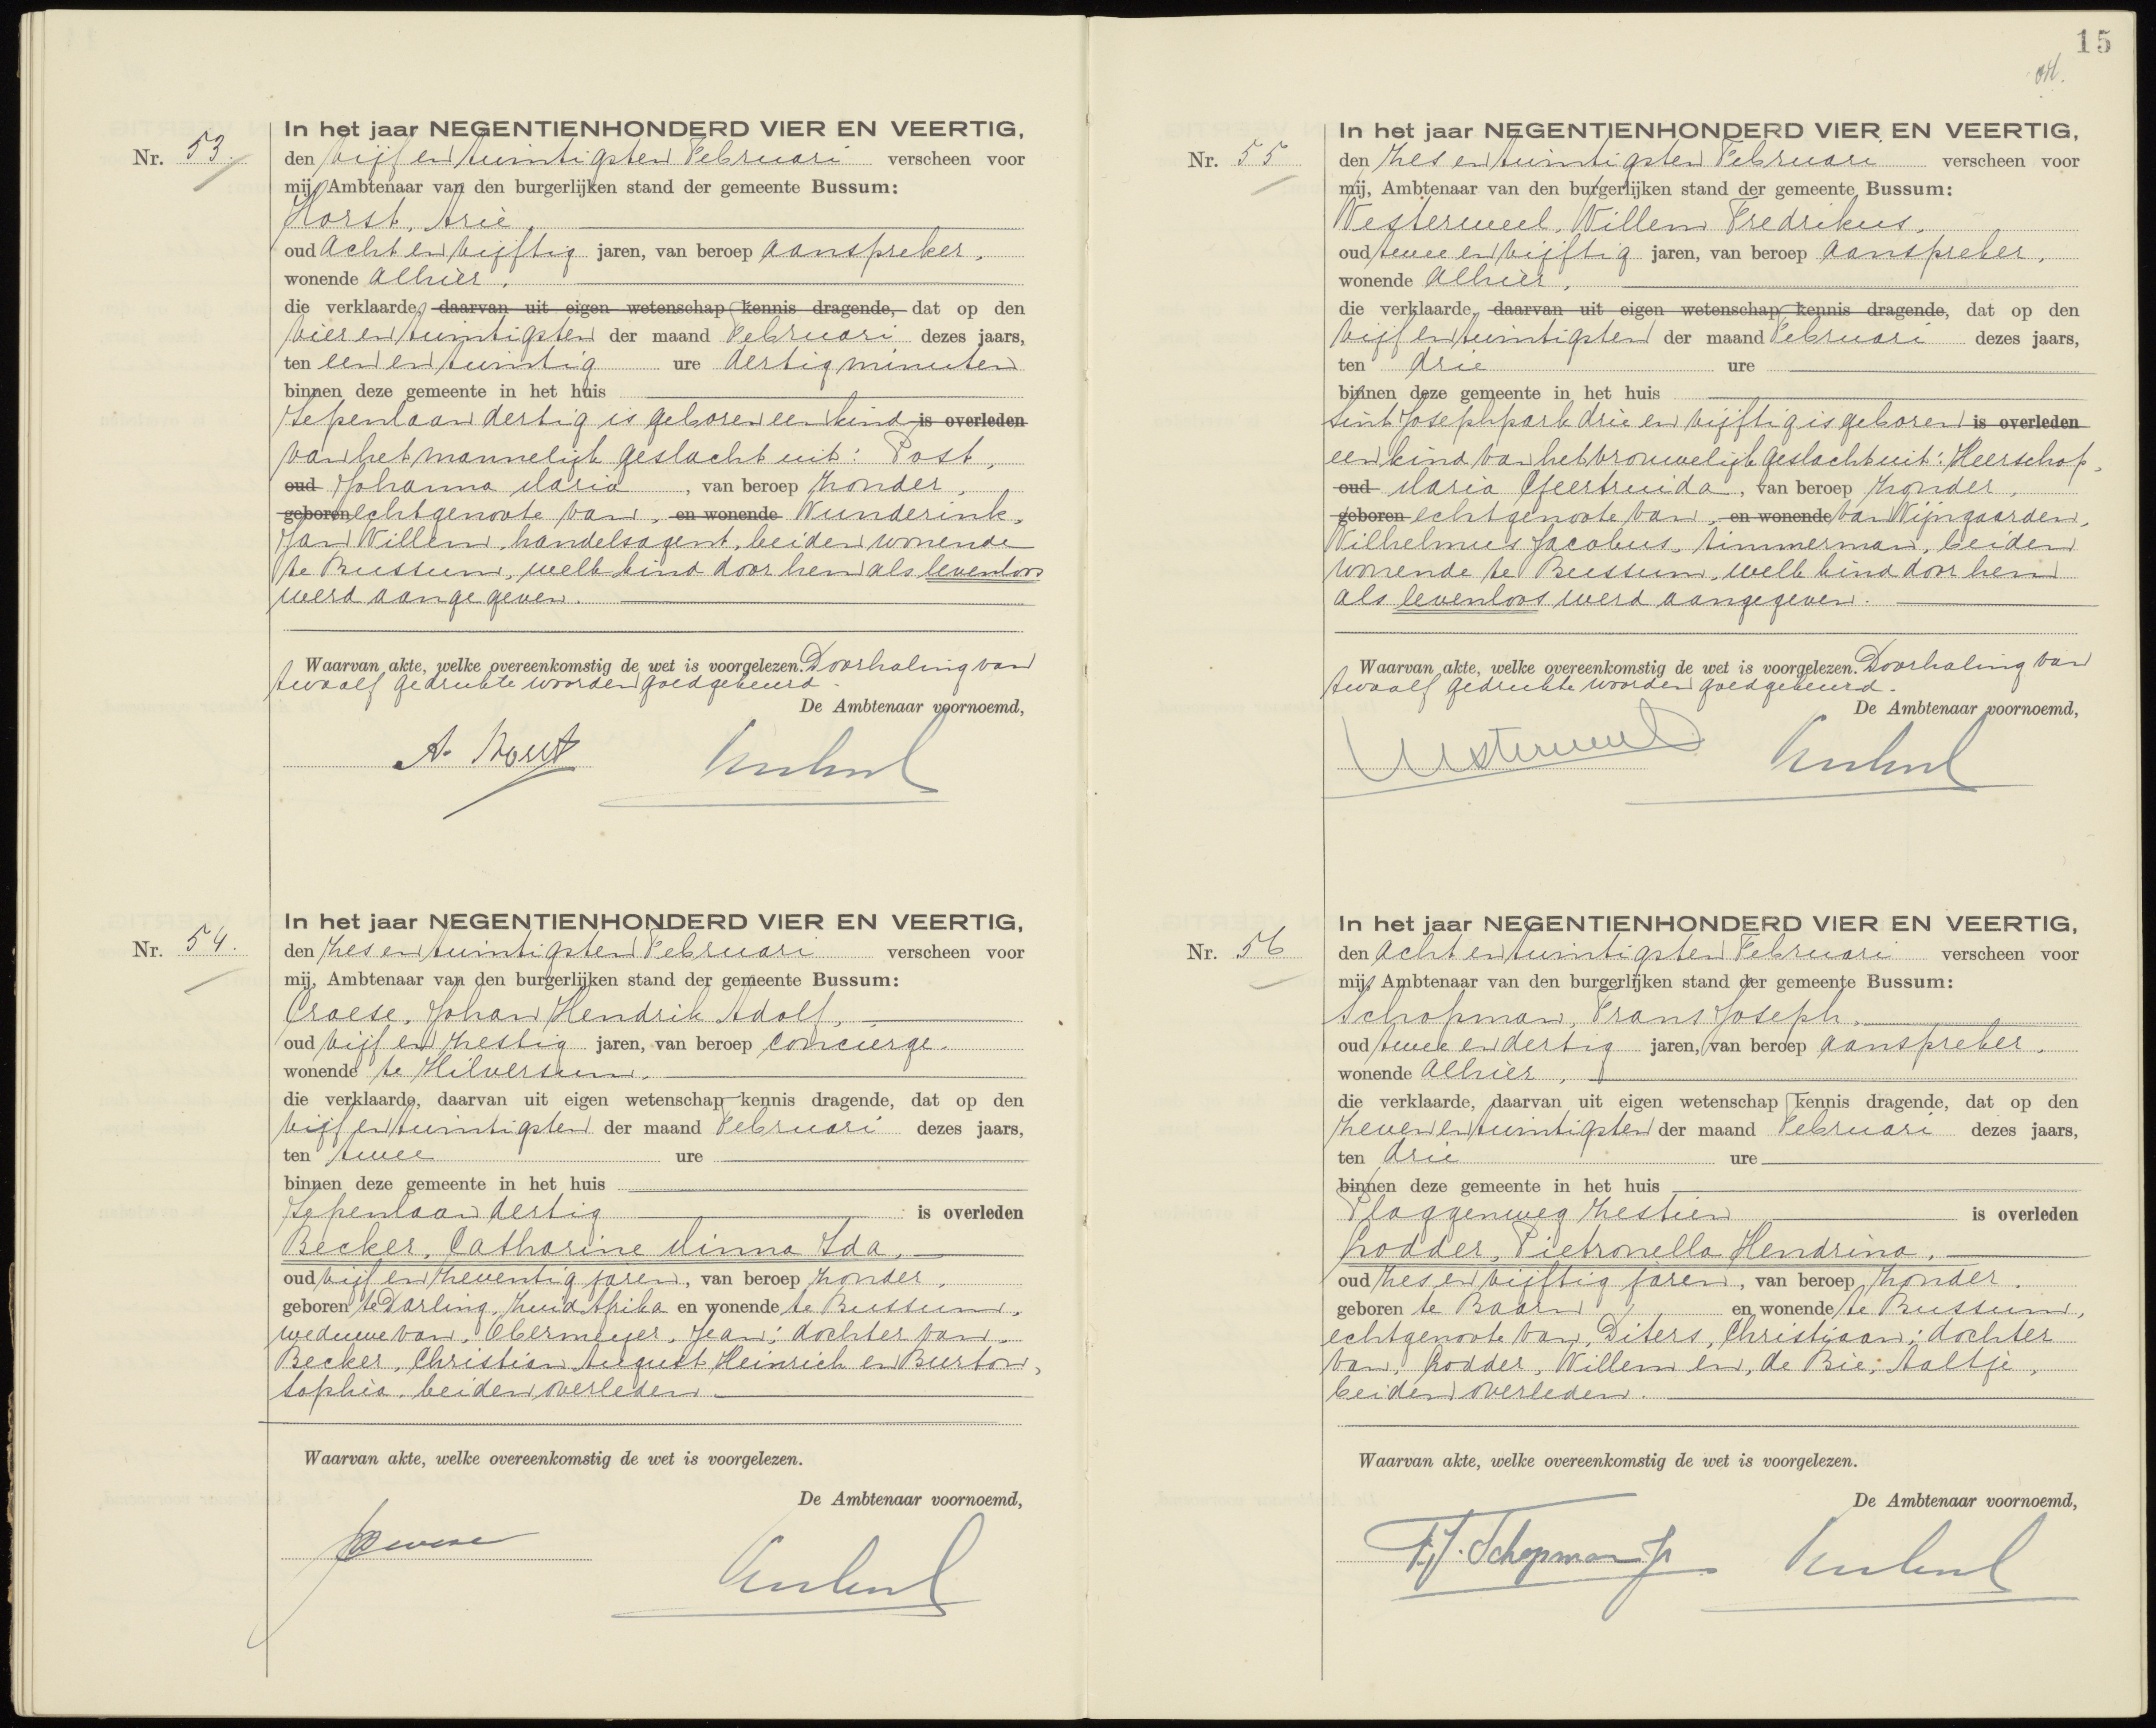 15
Nr. 53.
In het jaar NEGENTIENHONDERD VIER EN VEERTIG,
den vijf en twintigsten Februari verscheen voor
mij, Ambtenaar van den burgerlijken stand der gemeente Bussum:
Horst, Arie,
oud acht en vijftig jaren, van beroep aanspreker,
wonende alhier,
die verklaarde, daarvan uit eigen wetenschap kennis dragende, dat op den
vier en twintigsten der maand Februari dezes jaars,
ten een en twintig ure dertig minuten
binnen deze gemeente in het huis
Iepenlaan dertig is geboren een kind is overleden
van het mannelijk geslacht uit: Post,
oud Johanna Maria, van beroep zonder,
geboren echtgenoote van, en wonende Wunderink,
Jan Willem, handelsagent, beiden wonende
te Bussum, welk kind door hem als levenloos
werd aangegeven.
Waarvan akte, welke overeenkomstig de wet is voorgelezen. Doorhaling van
twaalf gedrukte woorden goedgekeurd.
De Ambtenaar voornoemd,
A. Horst
Nr. 54.
In het jaar NEGENTIENHONDERD VIER EN VEERTIG,
den zes en twintigsten Februari verscheen voor
mij, Ambtenaar van den burgerlijken stand der gemeente Bussum:
Craese, Johan Hendrik Adolf,
oud vijf en zestig jaren, van beroep concierge,
wonende te Hilversum,
die verklaarde, daarvan uit eigen wetenschap kennis dragende, dat op den
vijf en twintigsten der maand Februari dezes jaars,
ten twee ure
binnen deze gemeente in het huis
Iepenlaan dertig is overleden
Becker, Catharine Minna Ida,
oud vijf en zeventig jaren, van beroep zonder,
geboren te Darling, Zuid Afrika en wonende te Bussum,
weduwe van, Obermeijer, Jean; dochter van,
Becker, Christian August Heinrich en Burton,
Sophia, beiden overleden
Waarvan akte, welke overeenkomstig de wet is voorgelezen.
De Ambtenaar voornoemd,
Nr. 55
In het jaar NEGENTIENHONDERD VIER EN VEERTIG,
den zes en twintigsten Februari verscheen voor
mij, Ambtenaar van den burgerlijken stand der gemeente Bussum:
Westerweel, Willem Fredrikus,
oud twee en vijftig jaren, van beroep aanspreker,
wonende alhier,
die verklaarde, daarvan uit eigen wetenschap kennis dragende, dat op den
vijf en twintigsten der maand Februari dezes jaars,
ten drie ure
binnen deze gemeente in het huis
Sint Josephpark drie en vijftig is geboren is overleden
een kind van het vrouwelijk geslacht uit: Heerschop,
oud Maria Geertruida, van beroep zonder,
geboren echtgenoote van, en wonende van Wijngaarden,
Wilhelmus Jacobus, timmerman, beiden
wonende te Bussum, welk kind door hem
als levenloos werd aangegeven.
Waarvan akte, welke overeenkomstig de wet is voorgelezen. Doorhaling van
twaalf gedrukte woorden goedgekeurd.
De Ambtenaar voornoemd,
Westerweel
Nr. 56
In het jaar NEGENTIENHONDERD VIER EN VEERTIG,
den acht en twintigsten Februari verscheen voor
mij, Ambtenaar van den burgerlijken stand der gemeente Bussum:
Schopman, Frans Joseph,
oud twee en dertig jaren, van beroep aanspreker,
wonende alhier,
die verklaarde, daarvan uit eigen wetenschap kennis dragende, dat op den
zeven en twintigsten der maand Februari dezes jaars,
ten drie ure
binnen deze gemeente in het huis
Plaggenweg zestien is overleden
Grodder, Pietronella Hendrina,
oud zes en vijftig jaren, van beroep zonder,
geboren te Baarn en wonende te Bussum,
echtgenoote van, Diters, Christiaan; dochter
van, Grodder, Willem en, de Bie, Aaltje,
beiden overleden.
Waarvan akte, welke overeenkomstig de wet is voorgelezen.
De Ambtenaar voornoemd,
F.J. Schopman Jr